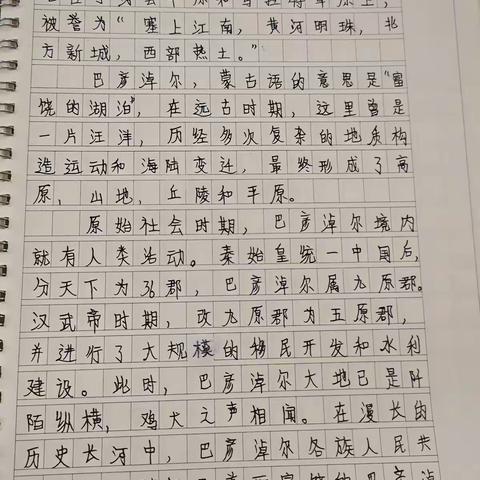 原和乌拉特草原上，
被誉为“塞上江南，黄河明珠，北
方新城，西部热土。”
巴彦淖尔，蒙古语的意思是“富
饶的湖泊”，在远古时期，这里曾是
一片汪洋，历经多次复杂的地质构
造运动和海陆变迁，最终形成了高
原，山地，丘陵和平原。
原始社会时期，巴彦淖尔境内
就有人类活动。秦始皇统一中国后，
分天下为36郡，巴彦淖尔属九原郡。
汉武帝时期，改九原郡为五原郡，
并进行了大规模的移民开发和水利
建设。此时，巴彦淖尔大地已是阡
陌纵横，鸡犬之声相闻。在漫长的
历史长河中，巴彦淖尔各族人民共